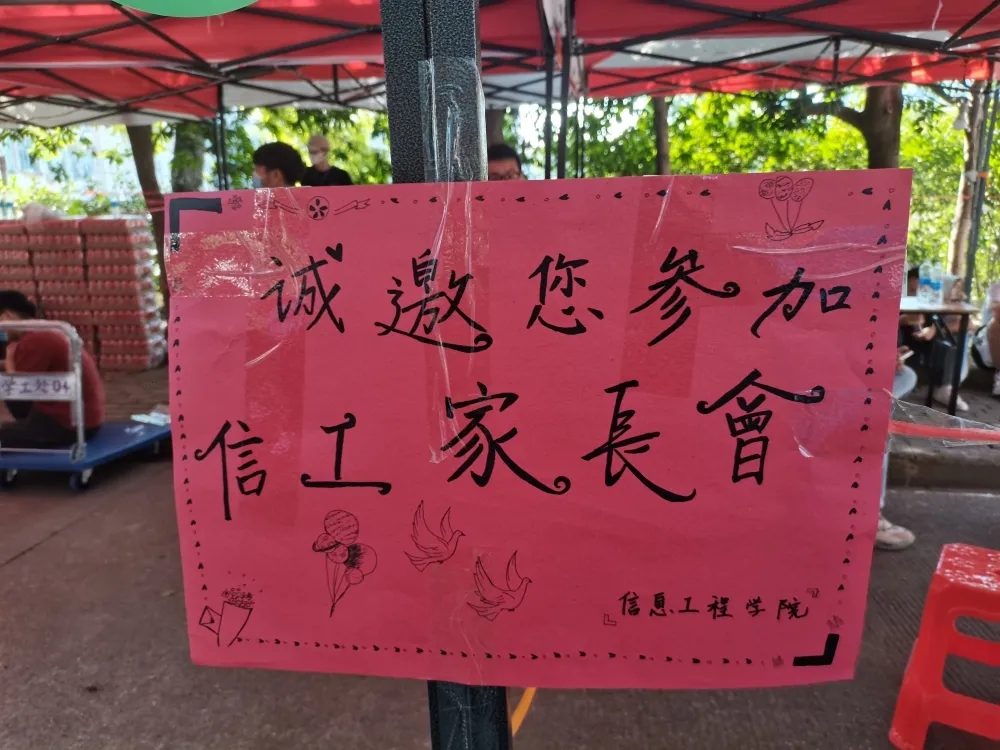 诚邀您参加
信工家長會
『信息工程学院』
学工处04